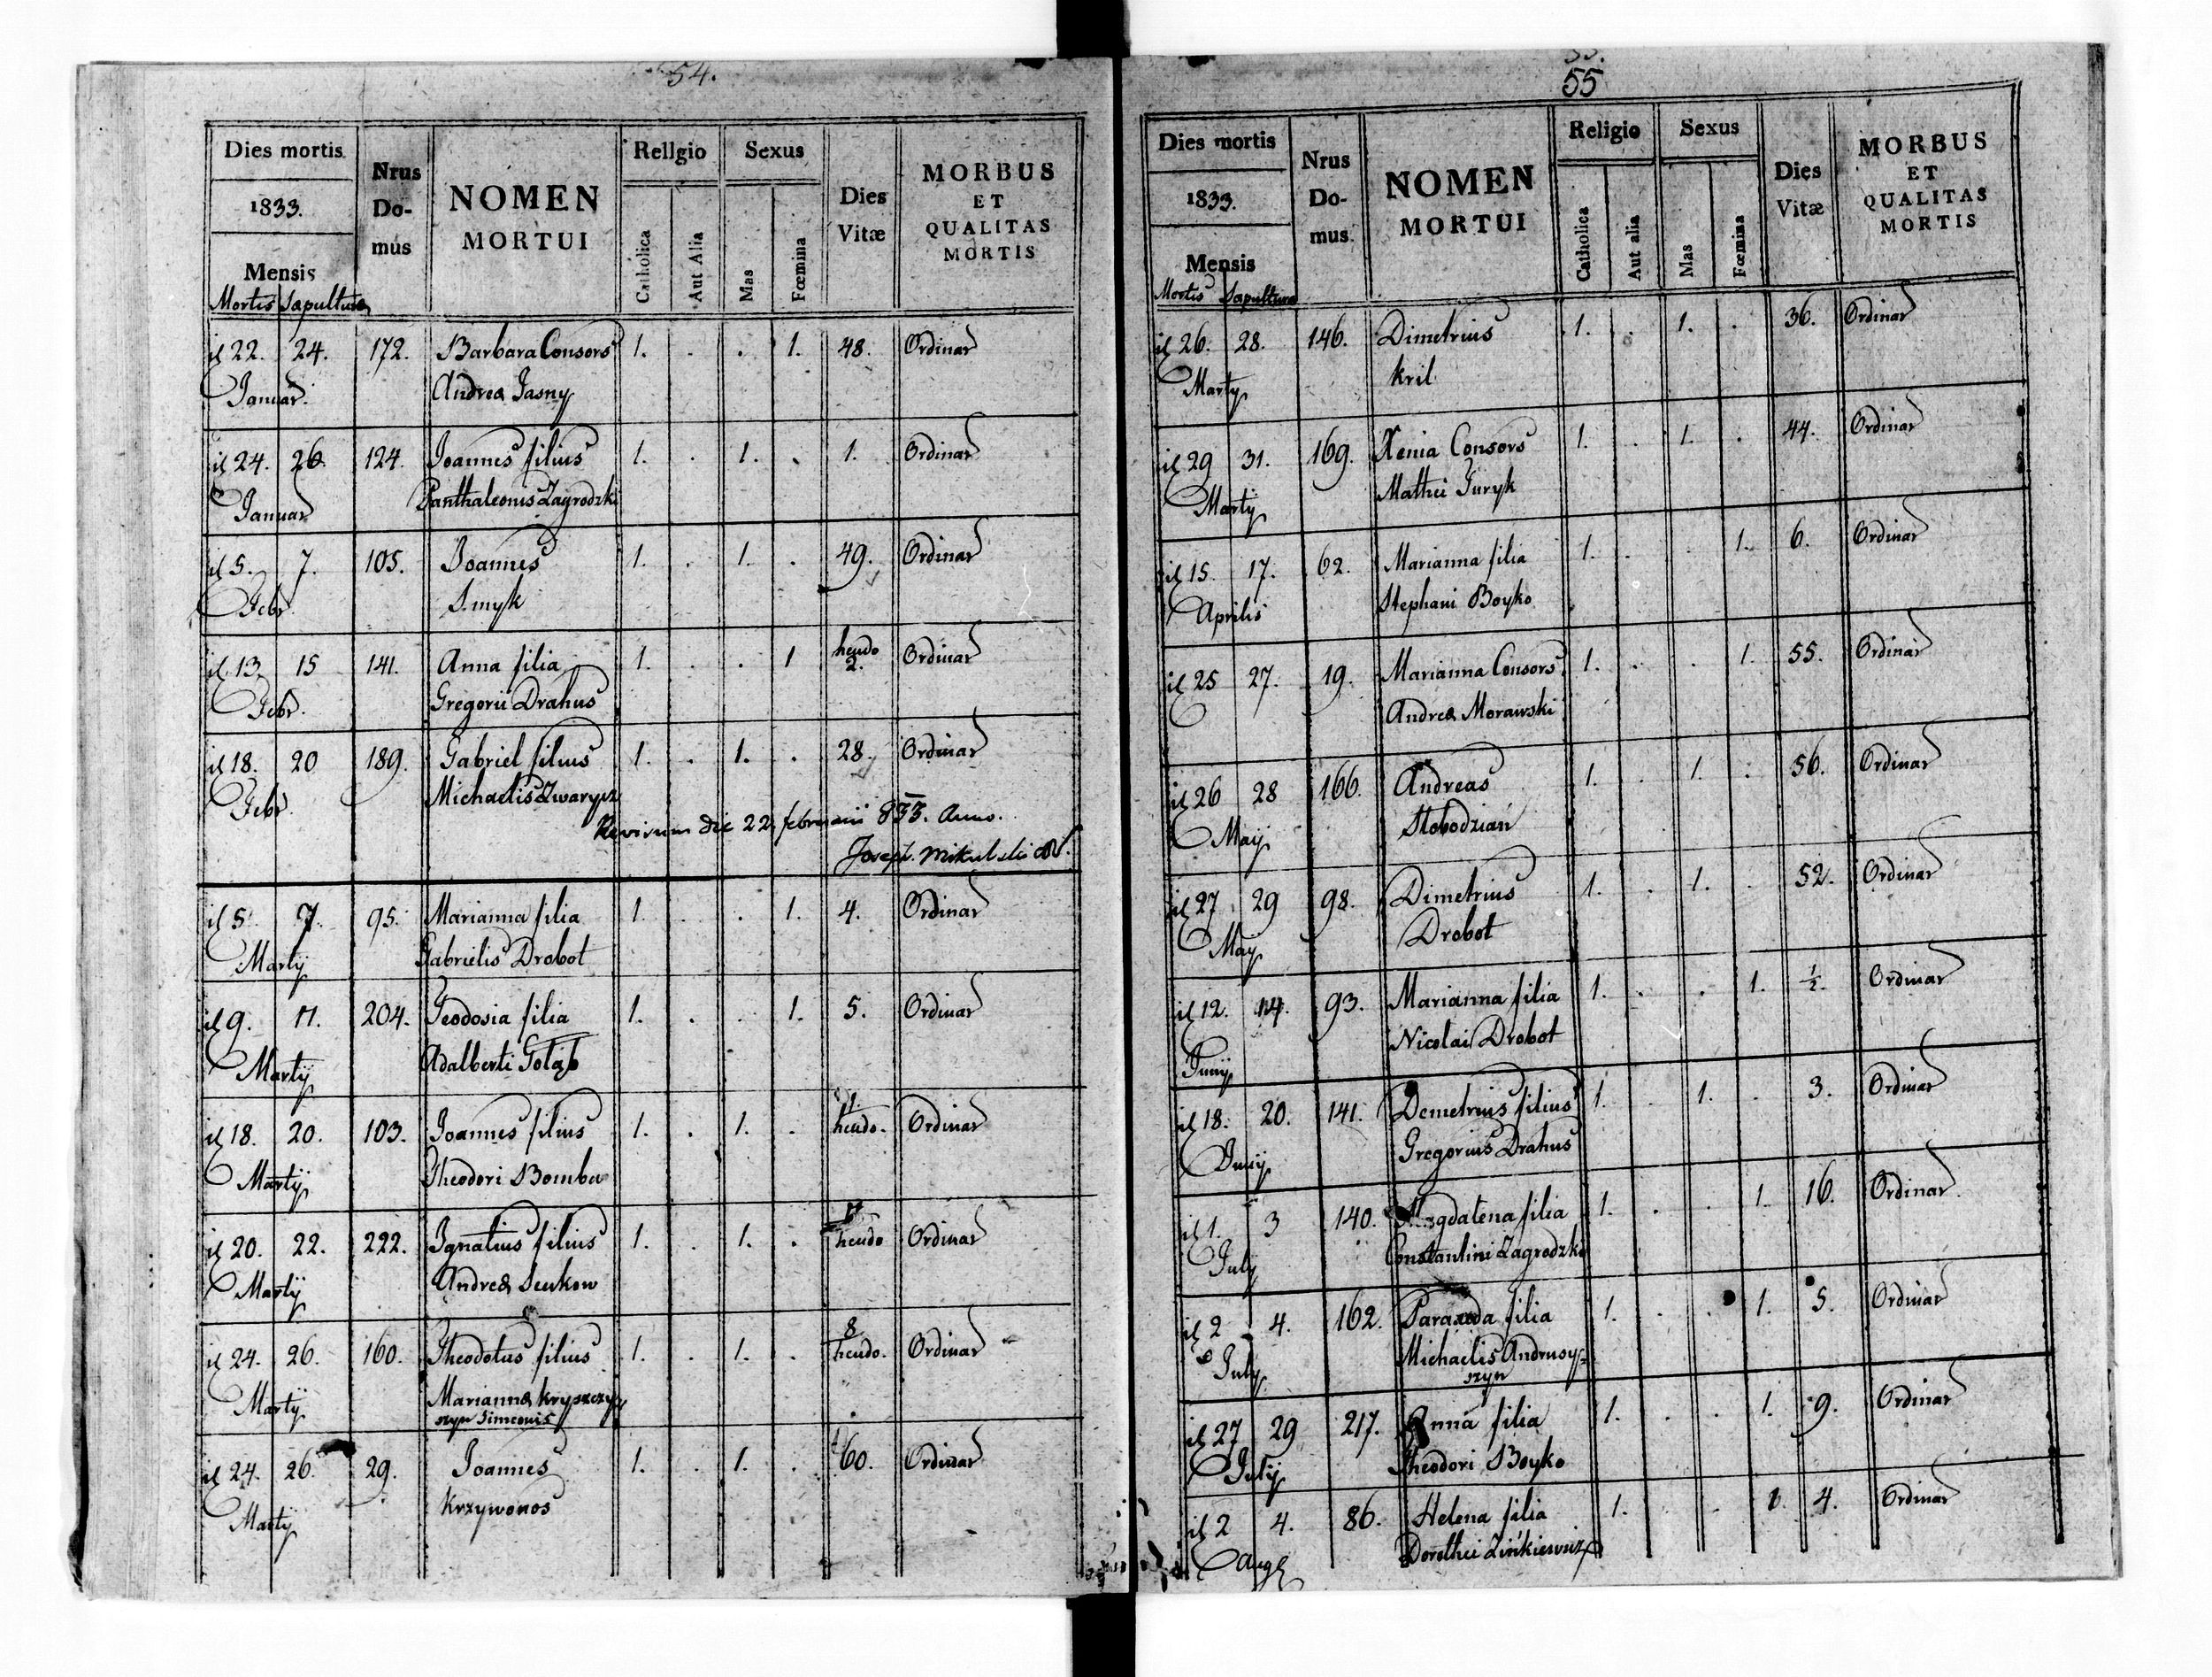 54.
Dies mortis
1833.
Mensis
Mortis Sapulturæ
Nrus
Do-
mus
NOMEN
MORTUI
Rellgio
Catholica
Aut Alia
Sexus
Mas
Fœmina
Dies
Vitæ
MORBUS
ET
QUALITAS
MORTIS
il 22. 24. 172. Barbara Consors 1. . . 1. 48. Ordinar
Januar. Andreæ Jasny
il 24. 26. 124. Joannes filius 1. . 1. . 1. Ordinar
Januar Panthaleonis Zagrodzki
il 5. 7. 105. Joannes 1. . 1. . 49. Ordinar
Febr. Smyk
il 13. 15 141. Anna filia 1. . . 1 hendo 2. Ordinar
Febr. Gregorii Drahus
il 18. 20 189. Gabriel filius 1. . 1. . 28. Ordinar
Febr. Michaelis Zwarycz
Revisum die 22 februarii 833. Anno.
Joseph. Mikulski
il 5. 7. 95. Marianna filia 1. . . 1. 4. Ordinar
Martij Gabrielis Drobot
il 9. 11. 204. Teodosia filia 1. . . 1. 5. Ordinar
Martij Adalberti Gołąb
il 18. 20. 103. Joannes filius 1. . 1. . 1. hendo. Ordinar
Martij Theodori Bomba
il 20. 22. 222. Ignatius filius 1. . 1. . hendo Ordinar
Martij Andreæ Senkow
il 24. 26. 160. Theodotus filius 1. . 1. . 8 hendo. Ordinar
Martij Mariannæ Kryszczy
szyn Simeonis
il 24. 26. 29. Joannes 1. . 1. . 60. Ordinar
Martij Krzywonos
55
Dies mortis
1833.
Mensis
Mortis Sapulturæ
Nrus
Do-
mus
NOMEN
MORTUI
Religio
Catholica
Aut alia
Sexus
Mas
Fœmina
Dies
Vitæ
MORBUS
ET
QUALITAS
MORTIS
il 26. 28. 146. Dimetrius 1. . 1. . 36. Ordinar
Martij Kril
il 29 31. 169. Xenia Consors 1. . 1. . 44. Ordinar
Martij Mathei Juryk
il 15. 17. 62. Marianna filia 1. . . 1. 6. Ordinar
Aprilis Stephani Boyko
il 25 27. 19. Marianna Consors 1. . . 1. 55. Ordinar
Andreæ Morawski
il 26 28 166. Andreas 1. . 1. . 56. Ordinar
Maij Słobodzian
il 27 29 98. Dimetrius 1. . 1. . 52. Ordinar
Maij Drobot
il 12. 14. 93. Marianna filia 1. . . 1. ½. Ordinar
Junij Nicolai Drobot
il 18. 20. 141. Demetrius filius 1. . 1. . 3. Ordinar
Junij Gregorius Drahus
il 1. 3 140. Magdalena filia 1. . . 1. 16. Ordinar
July Constantini Zagrodzki
il 2 4. 162. Paraxeda filia 1. . . 1. 5. Ordinar
July Michaelis Andrusy-
szyn
il 27 29 217. Anna filia 1. . . 1. 9. Ordinar
Julij Theodori Boyko
il 2 4. 86. Helena filia 1. . . 1. 4. Ordinar
Aug Dorothei Zinkiewicz